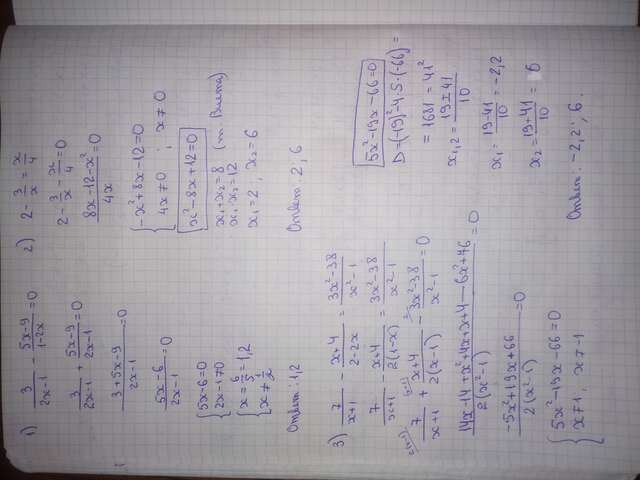 1) 3/(2x-1) - (5x-9)/(1-2x) = 0
3/(2x-1) + (5x-9)/(2x-1) = 0
(3+5x-9)/(2x-1) = 0
(5x-6)/(2x-1) = 0
{5x-6=0
2x-1≠0
{x = 6/5 = 1,2
x ≠ 1/2
Ответ: 1,2
2) 2 - 3/x = x/4
2 - 3/x - x/4 = 0
(8x-12-x²)/4x = 0
{-x²+8x-12=0
4x≠0 ; x≠0
x²-8x+12=0
x₁+x₂=8
x₁·x₂=12 (т. Виета)
x₁=2, x₂=6
Ответ: 2; 6
3) 7/(x+1) - (x+4)/(2-2x) = (3x²-38)/(x²-1)
7/(x+1) - (x+4)/(2(1-x)) = (3x²-38)/(x²-1)
7/(x+1) + (x+4)/(2(x-1)) - (3x²-38)/(x²-1) = 0
(14x-14+x²+4x+x+4-6x²+76)/(2(x²-1)) = 0
(-5x²+19x+66)/(2(x²-1)) = 0
{5x²-19x-66=0
x≠1, x≠-1
5x²-19x-66=0
D=(-19)²-4·5·(-66)=
=1681=41²
x₁,₂ = (19±41)/10
x₁ = (19-41)/10 = -2,2
x₂ = (19+41)/10 = 6
Ответ: -2,2; 6.